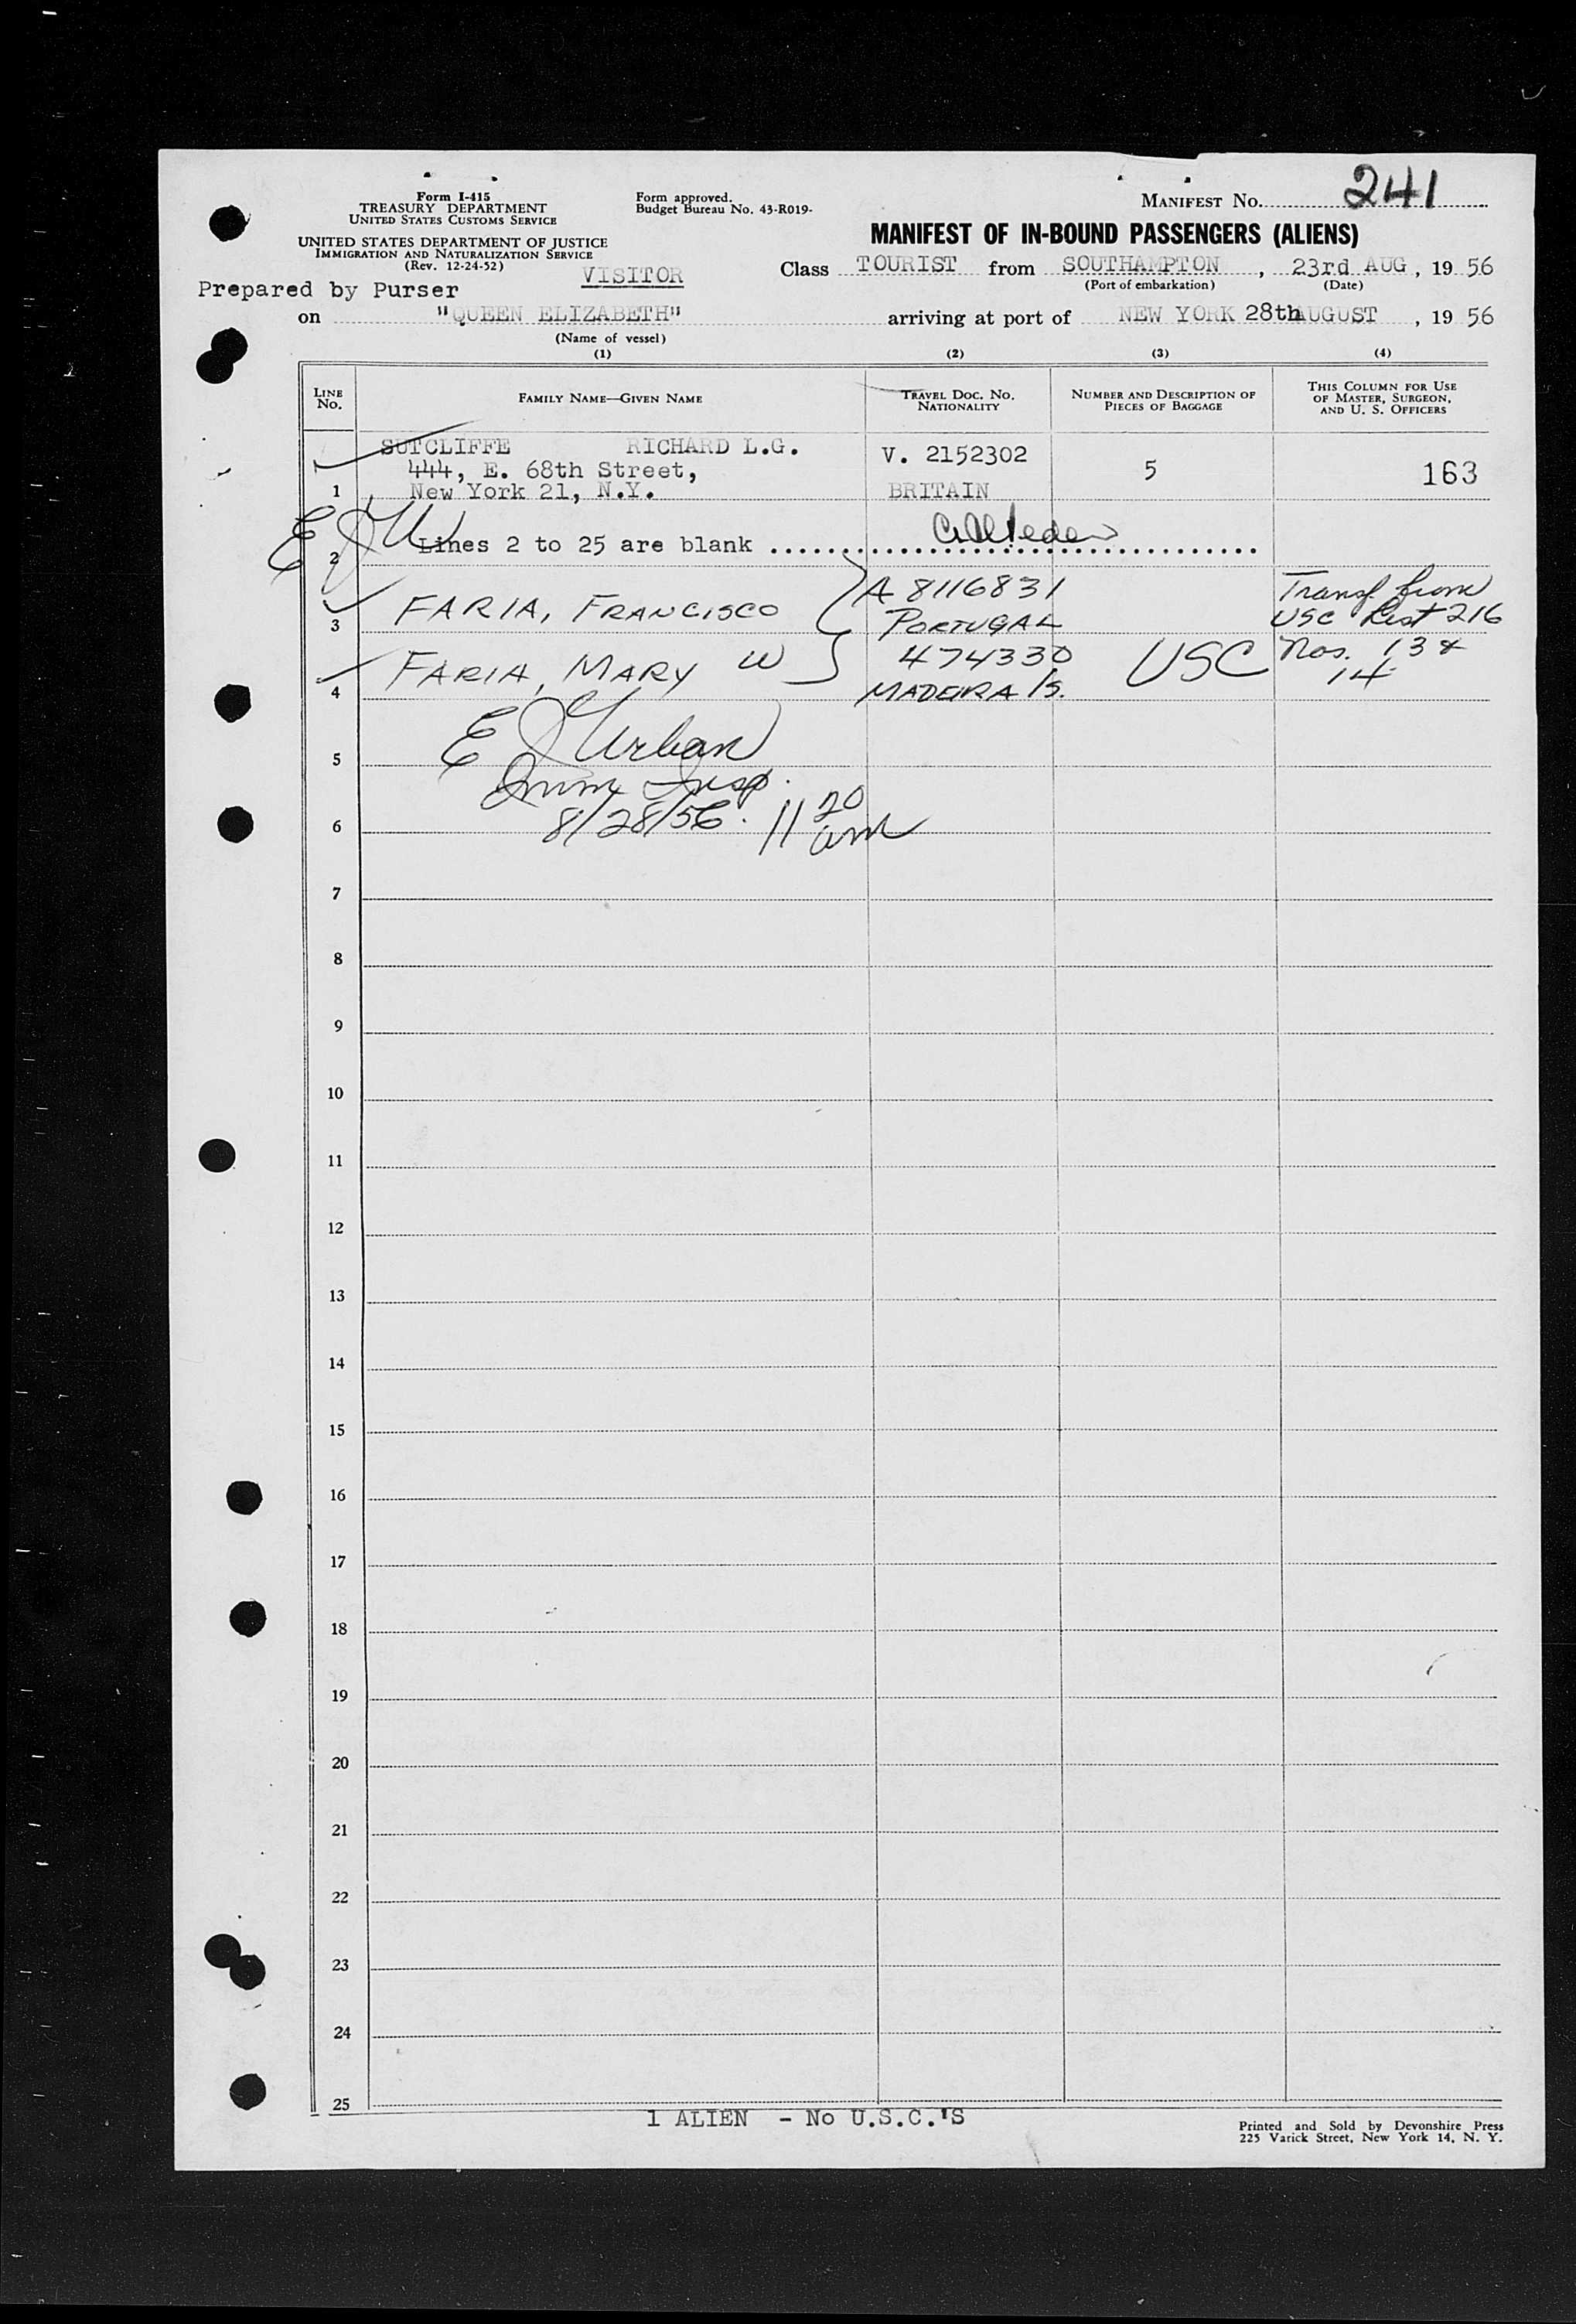 Form I-415
TREASURY DEPARTMENT
UNITED STATES CUSTOMS SERVICE
UNITED STATES DEPARTMENT OF JUSTICE
IMMIGRATION AND NATURALIZATION SERVICE
(Rev. 12-24-52)
Form approved.
Budget Bureau No. 43-R019-
MANIFEST NO. 241
MANIFEST OF IN-BOUND PASSENGERS (ALIENS)
VISITOR
Class TOURIST from SOUTHAMPTON, 23rd AUG, 19 56
(Port of embarkation) (Date)
Prepared by Purser
on "QUEEN ELIZABETH" arriving at port of NEW YORK 28th AUGUST, 19 56
(Name of vessel)
(1) (2) (3) (4)
LINE NO. FAMILY NAME—GIVEN NAME TRAVEL DOC. NO. NATIONALITY NUMBER AND DESCRIPTION OF PIECES OF BAGGAGE THIS COLUMN FOR USE OF MASTER, SURGEON, AND U. S. OFFICERS
SUTCLIFFE RICHARD L.G. V. 2152302
444, E. 68th Street, 5 163
1 New York 21, N.Y. BRITAIN
E J U
2 Lines 2 to 25 are blank
A 8116831 Transf from
3 FARIA, FRANCISCO PORTUGAL USC List 216
4 FARIA, MARY W 474330 USC Nos. 13 &
MADEIRA Is. 14
E J Urban
5
Imm Insp.
6 8/28/56. 11 20 am
7
8
9
10
11
12
13
14
15
16
17
18
19
20
21
22
23
24
25
1 ALIEN - No U.S.C.'S
Printed and Sold by Devonshire Press
225 Varick Street, New York 14, N. Y.